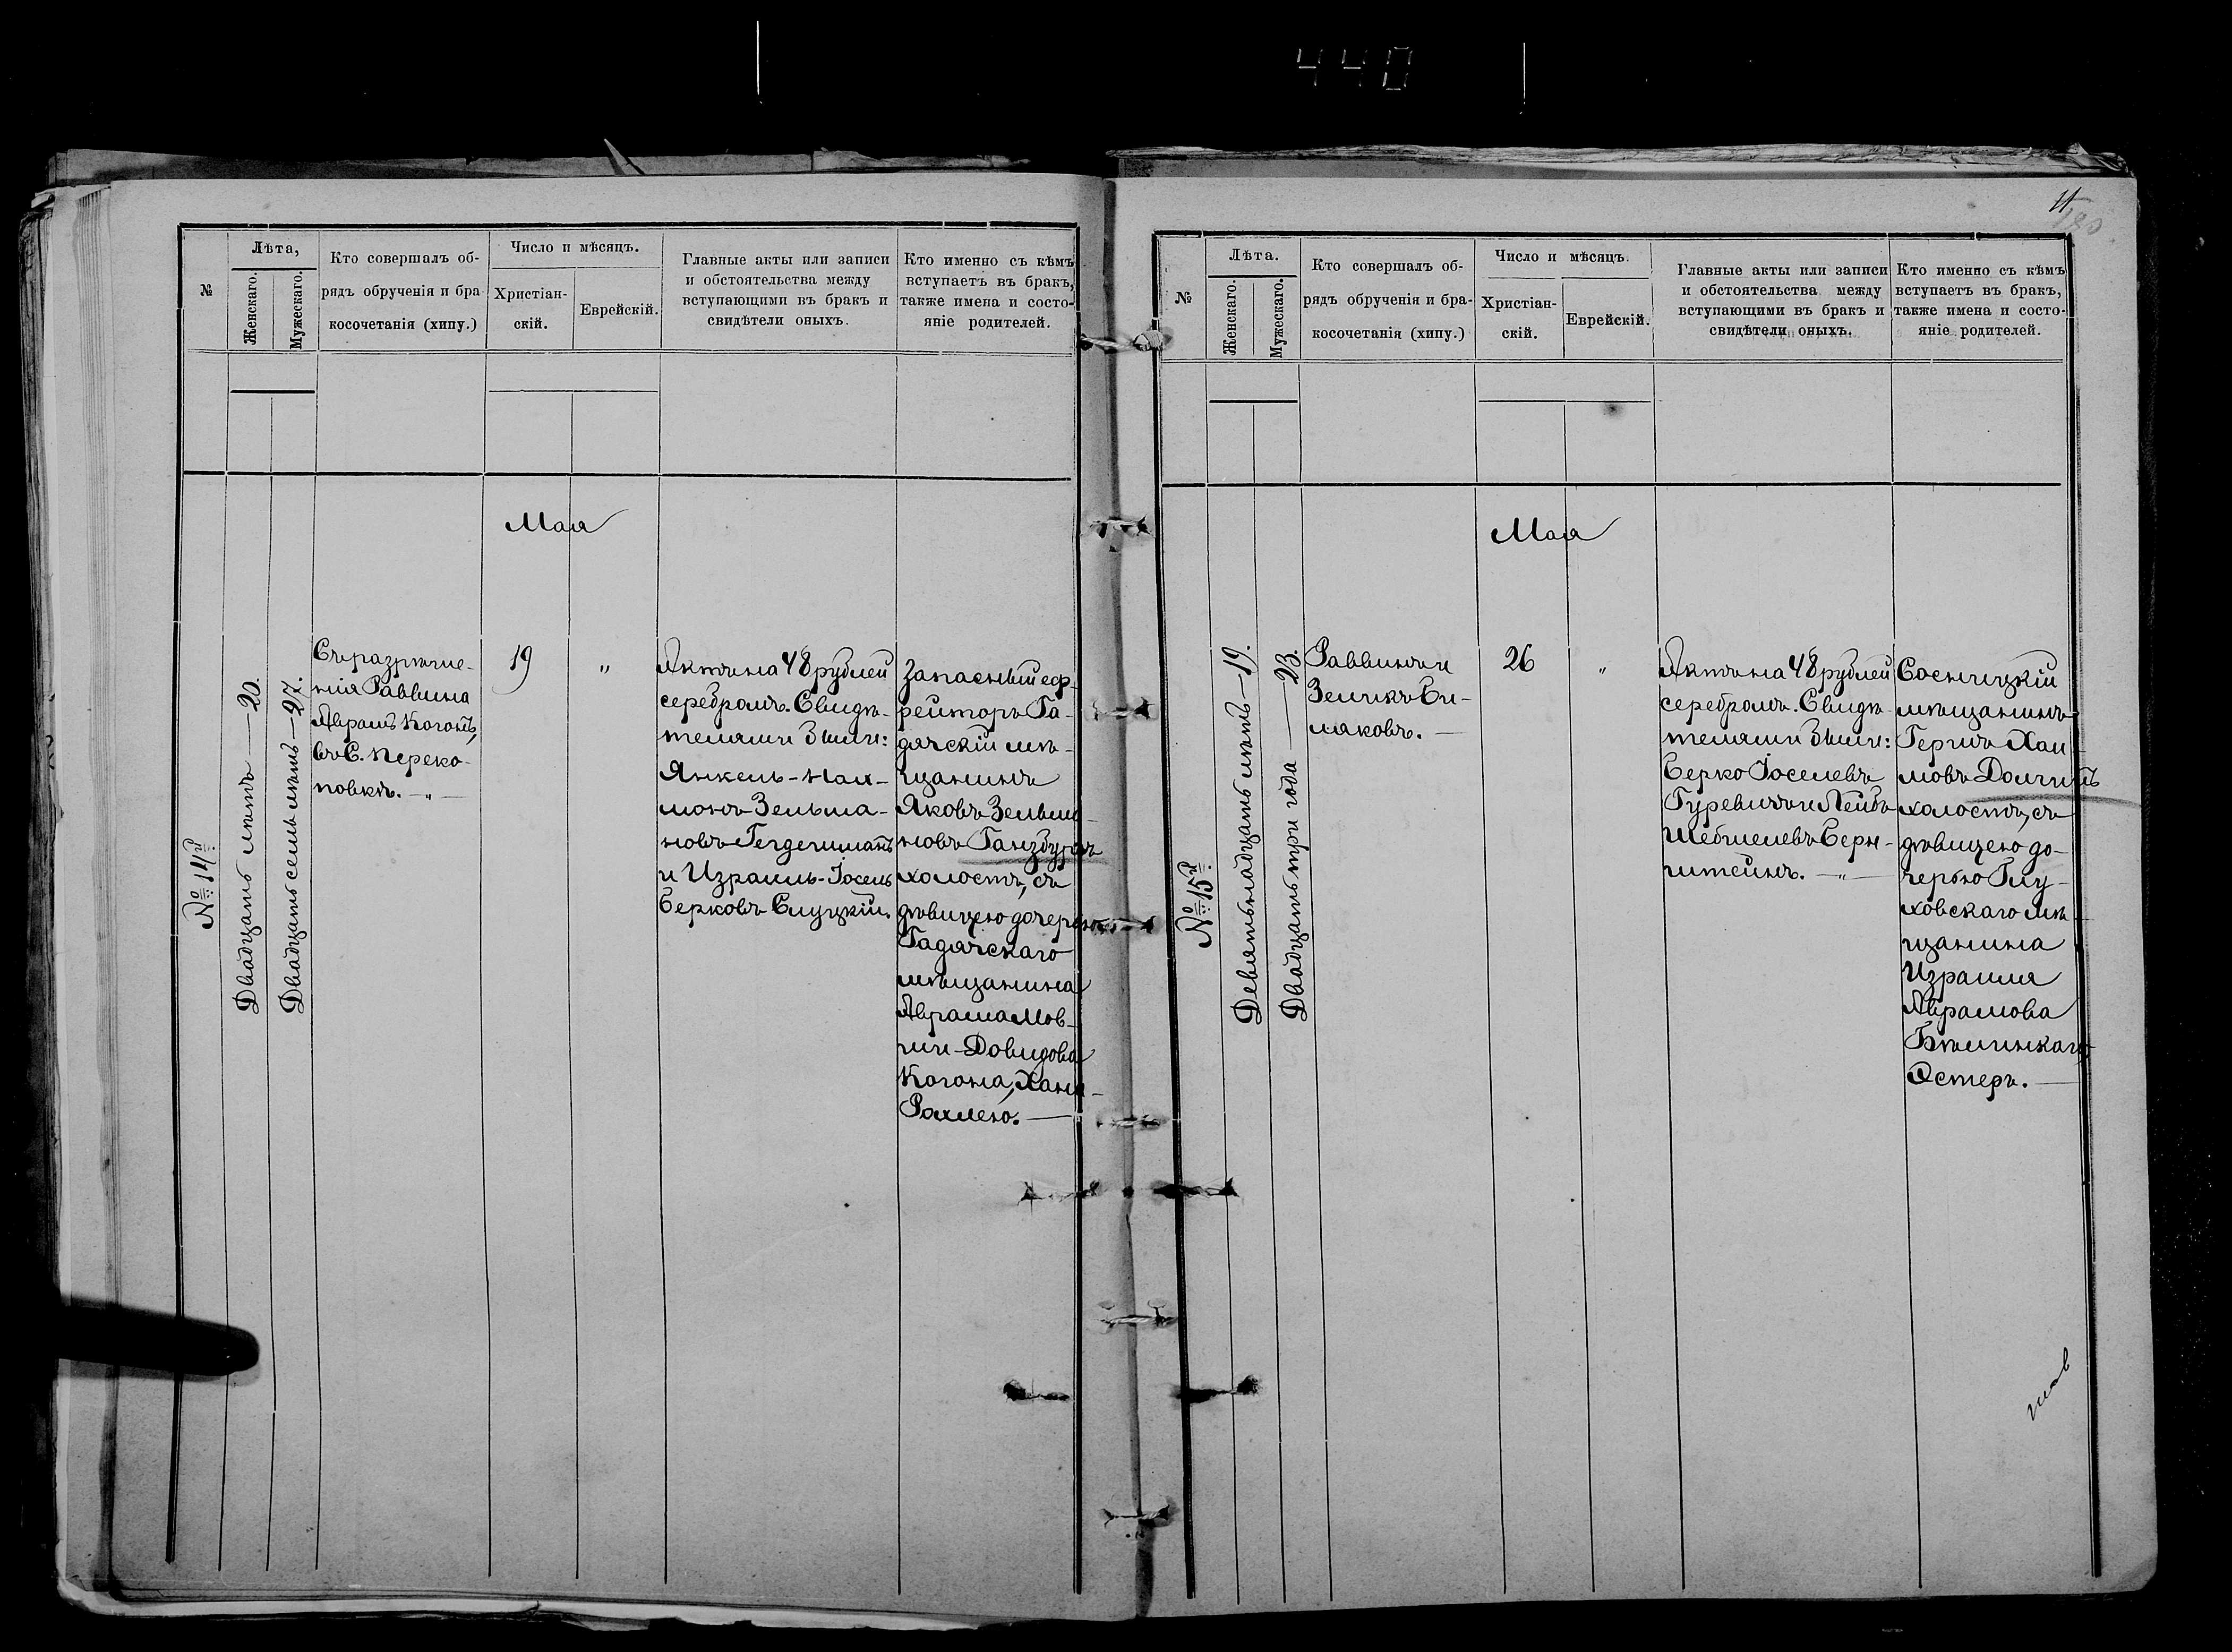 440
№
Лѣта,
Женскаго.
Мужескаго.
Кто совершалъ об-
рядъ обрученія и бра
косочетанія (хипу.)
Число и мѣсяцъ.
Христіан-
скій.
Еврейскій.
Главные акты или записи
и обстоятельства между
вступающими въ бракъ и
свидѣтели оныхъ.
Кто именно съ кѣмъ
вступаетъ въ бракъ,
также имена и состо-
яніе родителей.
Мая
№ 14й
Двадцать лѣтъ — 20.
Двадцать семь лѣтъ — 27.
Съ разрѣше-
нія Раввина
Аврамъ Когонъ,
въ С. Переко-
повкѣ. — „ —
19
„
Актъ на 48 рублей
серебромъ. Свидѣ-
телями были:
Янкель-Нах-
монъ Зельма-
новъ Гегдешманъ
и Израиль-Іосель
Берковъ Слуцкій.
Запасный еф-
рейторъ Га-
дячскій мѣ-
щанинъ
Яковъ Зельма-
новъ Ганзбургъ
холостъ, съ
дѣвицею дочерью
Гадячскаго
мѣщанина
Аврама Мов-
ши-Довидова
Когона, Хана-
Рахлею. —
11
180
№
Лѣта.
Женскаго.
Мужескаго.
Кто совершалъ об-
рядъ обрученія и бра-
косочетанія (хипу.)
Число и мѣсяцъ.
Христіан-
скій.
Еврейскій.
Главные акты или записи
и обстоятельства между
вступающими въ бракъ и
свидѣтели оныхъ.
Кто именно съ кѣмъ
вступаетъ въ бракъ,
также имена и состо-
яніе родителей.
Мая
№ 15й
Девятьнадцать лѣтъ — 19.
Двадцать три года — 23.
Раввинъ
Зеликъ Си-
маковъ. —
26
„
Актъ на 48 рублей
серебромъ. Свидѣ-
телями были:
Берко Іоселевъ
Гуревичъ и Лейбъ
Шебшелевъ Берн-
штейнъ. — „ —
Сосницкій
мѣщанинъ
Гершъ Хаи
мовъ Долгинъ
холостъ, съ
дѣвицею до-
черью Глу-
ховскаго мѣ-
щанина
Израиля
Аврамова
Бѣлинкаго
Эстеръ. —